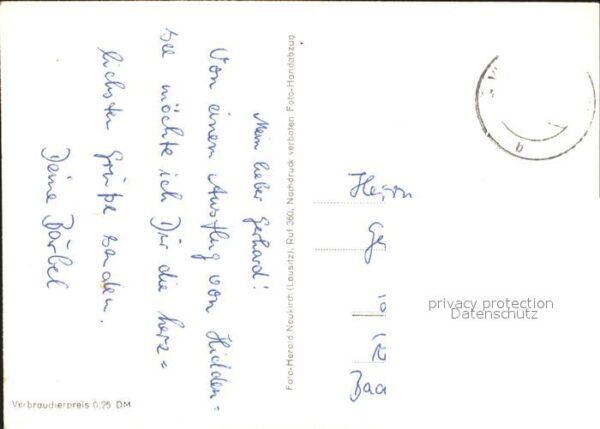 Mein lieber Gerhard!
Von einem Ausflug von Hidden=
see möchte ich Dir die herz=
lichsten Grüße senden.
Deine Bärbel
Verbraucherpreis 0,25 DM
Foto-Herold Neukirch (Lausitz), Ruf 360, Nachdruck verboten Foto-Handabzug
Herrn
Ge
privacy protection
Datenschutz